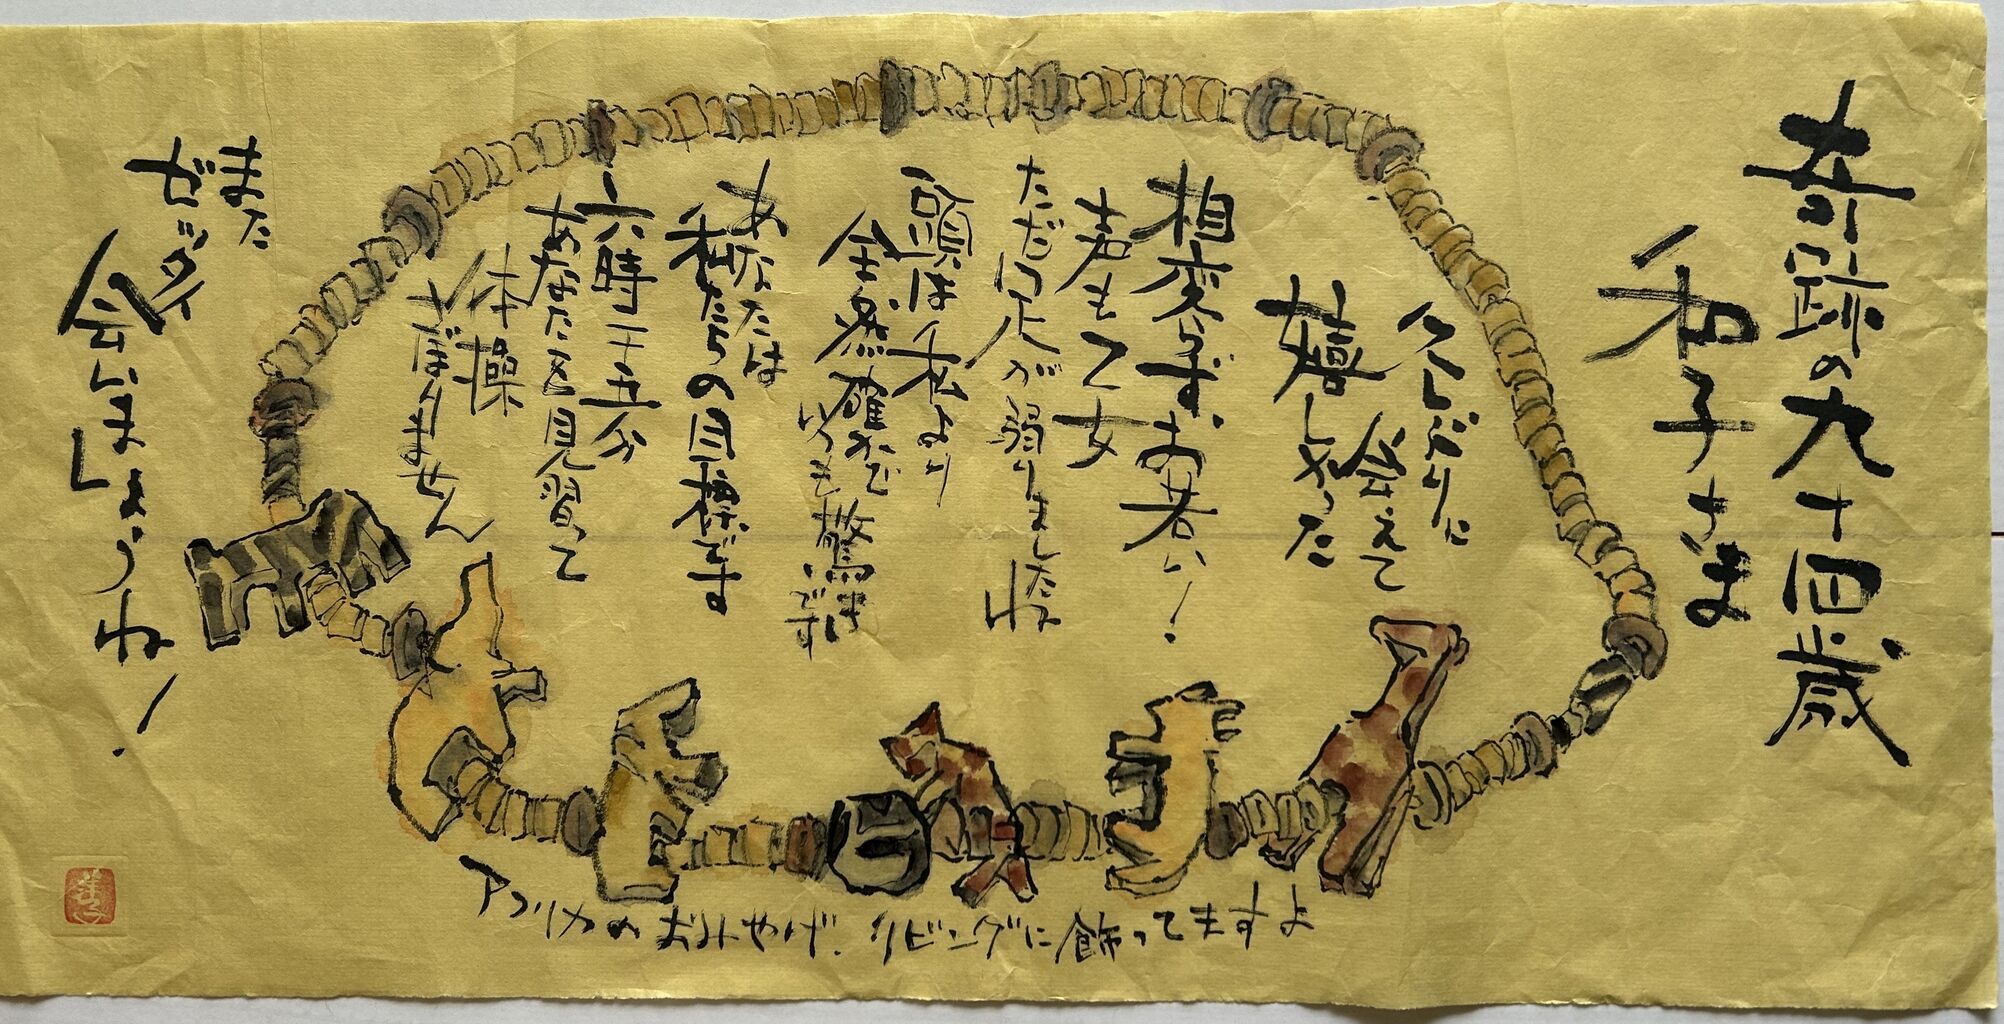 奇跡の九十四歳
和子さま
久しぶりに
会えて
嬉しかった
相変らず、お若い!
声も乙女
ただ足が弱りましたね
頭は私より
全然確かで
いつも驚きです
あなたは
私たちの目標です
六時二十五分
あなたを見習って
体操
さぼりません
また
ゼッタイ
会いましょうね!
アフリカのおみやげ、リビングに飾ってますよ